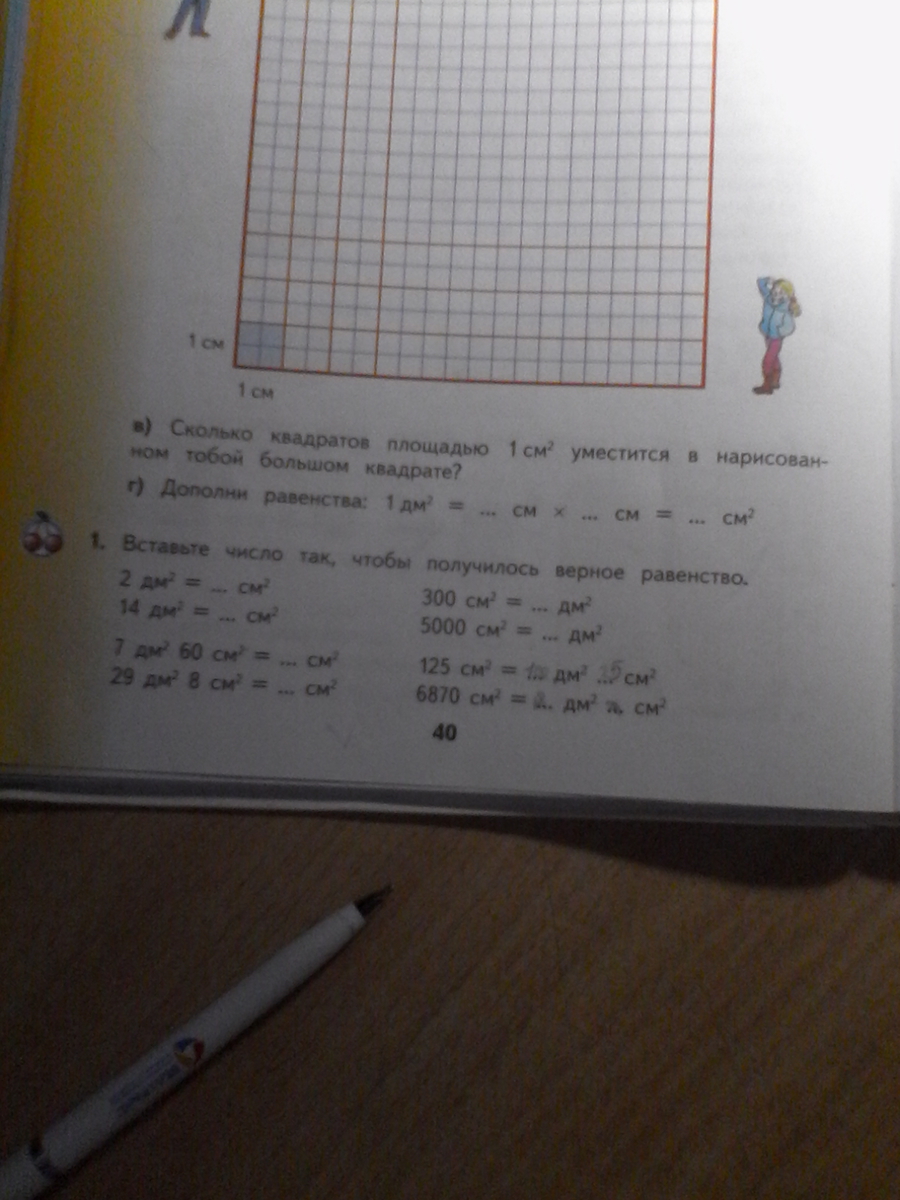 1 см
1 см
в) Сколько квадратов площадью 1 см² уместится в нарисован-
ном тобой большом квадрате?
г) Дополни равенства: 1 дм² = ... см × ... см = ... см²
1. Вставьте число так, чтобы получилось верное равенство.
2 дм² = ... см²
14 дм² = ... см²
7 дм² 60 см² = ... см²
29 дм² 8 см² = ... см²
300 см² = ... дм²
5000 см² = ... дм²
125 см² = ... дм² ... см²
6870 см² = ... дм² ... см²
40